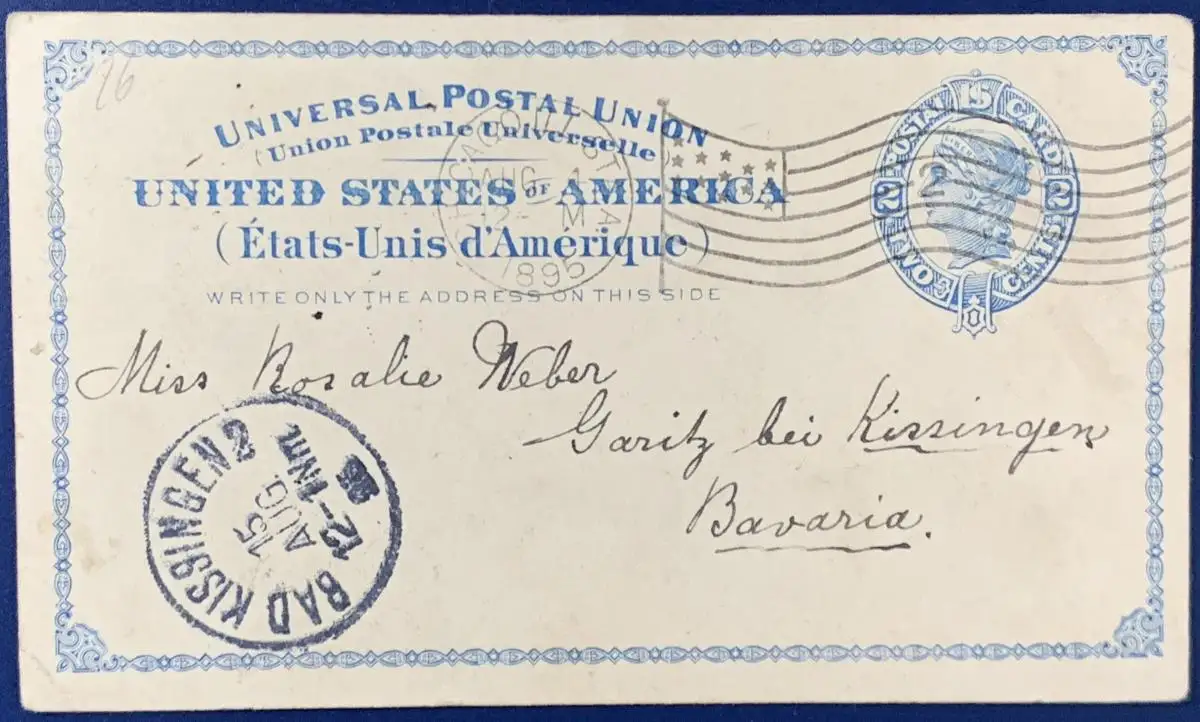 76
UNIVERSAL POSTAL UNION
(Union Postale Universelle)
UNITED STATES OF AMERICA
(États-Unis d'Amérique)
WRITE ONLY THE ADDRESS ON THIS SIDE
CHICAGO, ILL. STA
AUG 4
12- M
1895
2
POSTAL CARD
2 TWO CENTS 2
Miss Rosalie Weber
Garitz bei Kissingen
Bavaria.
BAD KISSINGEN 2
15
AUG.
12-1N
95